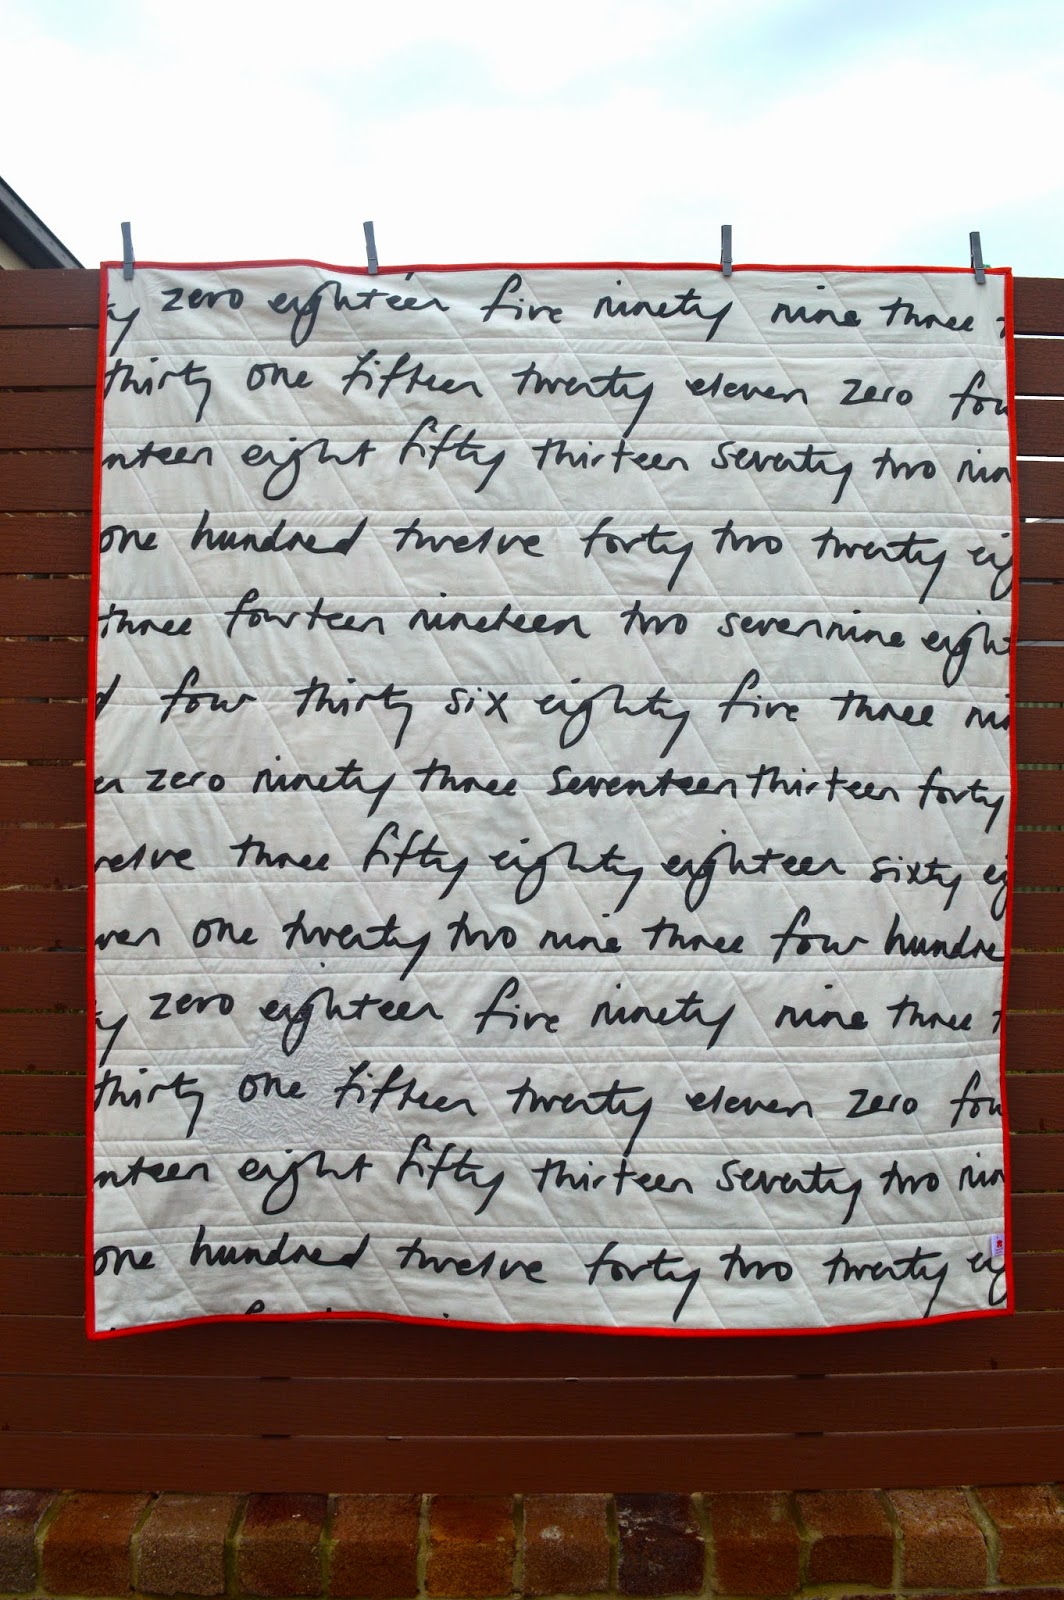 ty zero eighteen five ninety nine three
thirty one fifteen twenty eleven zero fou
nteen eight fifty thirteen seventy two nin
one hundred twelve forty two twenty eig
three fourteen nineteen two seven nine eight
d four thirty six eighty five three ni
en zero ninety three seventeen thirteen forty
welve three fifty eighty eighteen sixty eig
ven one twenty two nine three four hundre
ty zero eighteen five ninety nine three
thirty one fifteen twenty eleven zero fou
nteen eight fifty thirteen seventy two nin
one hundred twelve forty two twenty eig